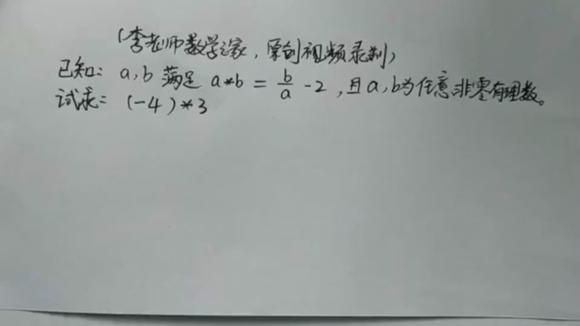 (李老师数学之家，原创视频录制)
已知：a,b 满足 a*b = b/a -2，且a,b为任意非零有理数。
试求：(-4)*3